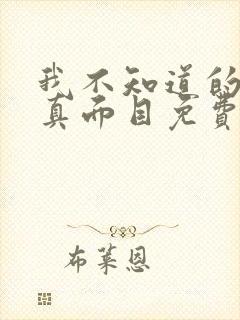 我不知道的
真面目免费
布莱恩